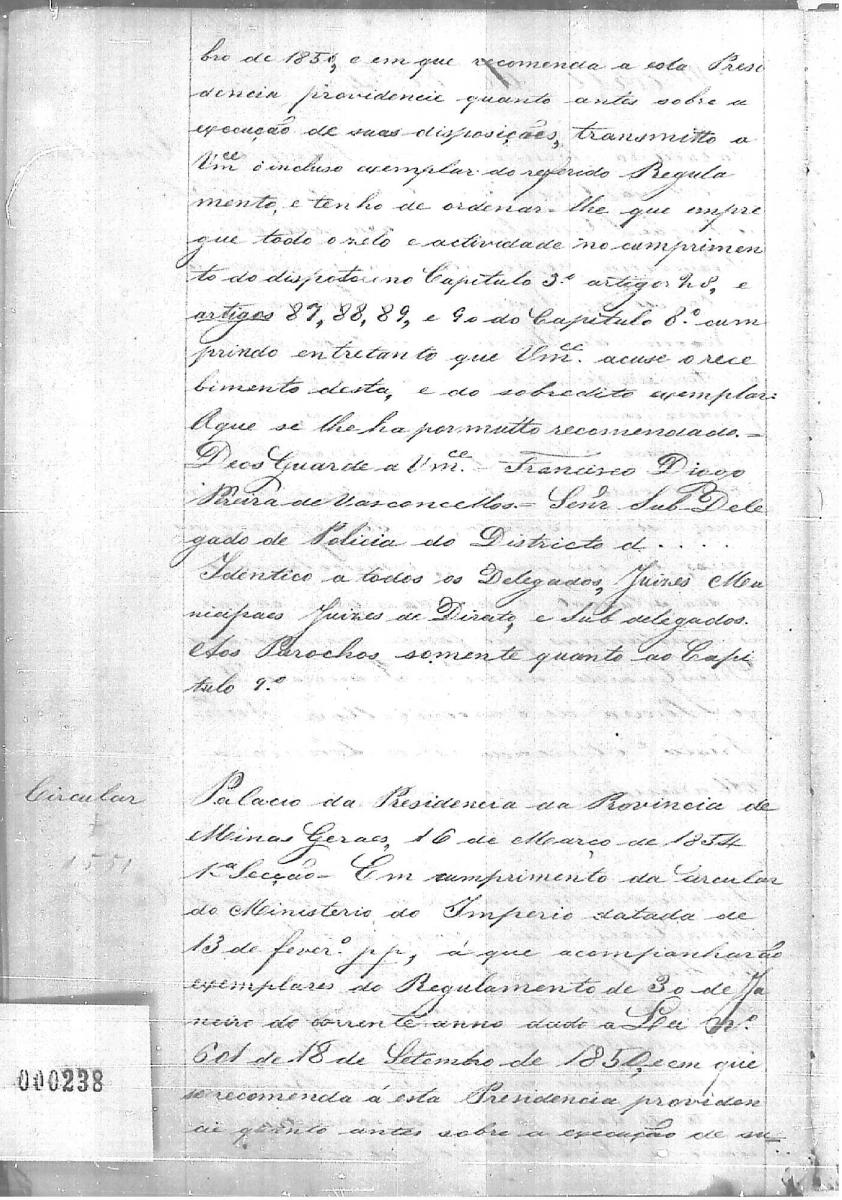 bro de 1850, e em que recomenda a esta Presi
dencia providencie quanto antes sobre a
execução de suas disposições, transmitto a
Vm.ce o incluso exemplar do referido Regula
mento, e tenho de ordenar-lhe que empre
gue todo o zelo e actividade no cumprimen
to do disposto no Capitulo 3.º artigo 28, e
artigos 87, 88, 89, e 90 do Capitulo 8.º cum
prindo entretanto que Vm.ce acuse o rece
bimento desta, e do sobredito exemplar.
O que se lhe ha por muito recomendado. =
Deos Guarde a Vm.ce - Francisco Diogo
Pereira de Vasconcellos. = Senr. Sub Dele
gado de Policia do Districto d. . . . .
Identico a todos os Delegados, Juizes Mu
nicipaes Juizes de Direito, e Sub delegados.
Aos Parochos somente quanto ao Capi
tulo 9.º
Circular
1551
Palacio da Presidencia da Provincia de
Minas Geraes, 16 de Março de 1854
1.ª Secção - Em cumprimento da circular
do Ministerio do Imperio datada de
13 de fever.º pp, á que acompanharão
exemplares do Regulamento de 30 de Ja
neiro do corrente anno dado a Lei N.º
601 de 18 de Setembro de 1850, e em que
se recomenda á esta Presidencia providen
cie quanto antes sobre a execução de su..
000238